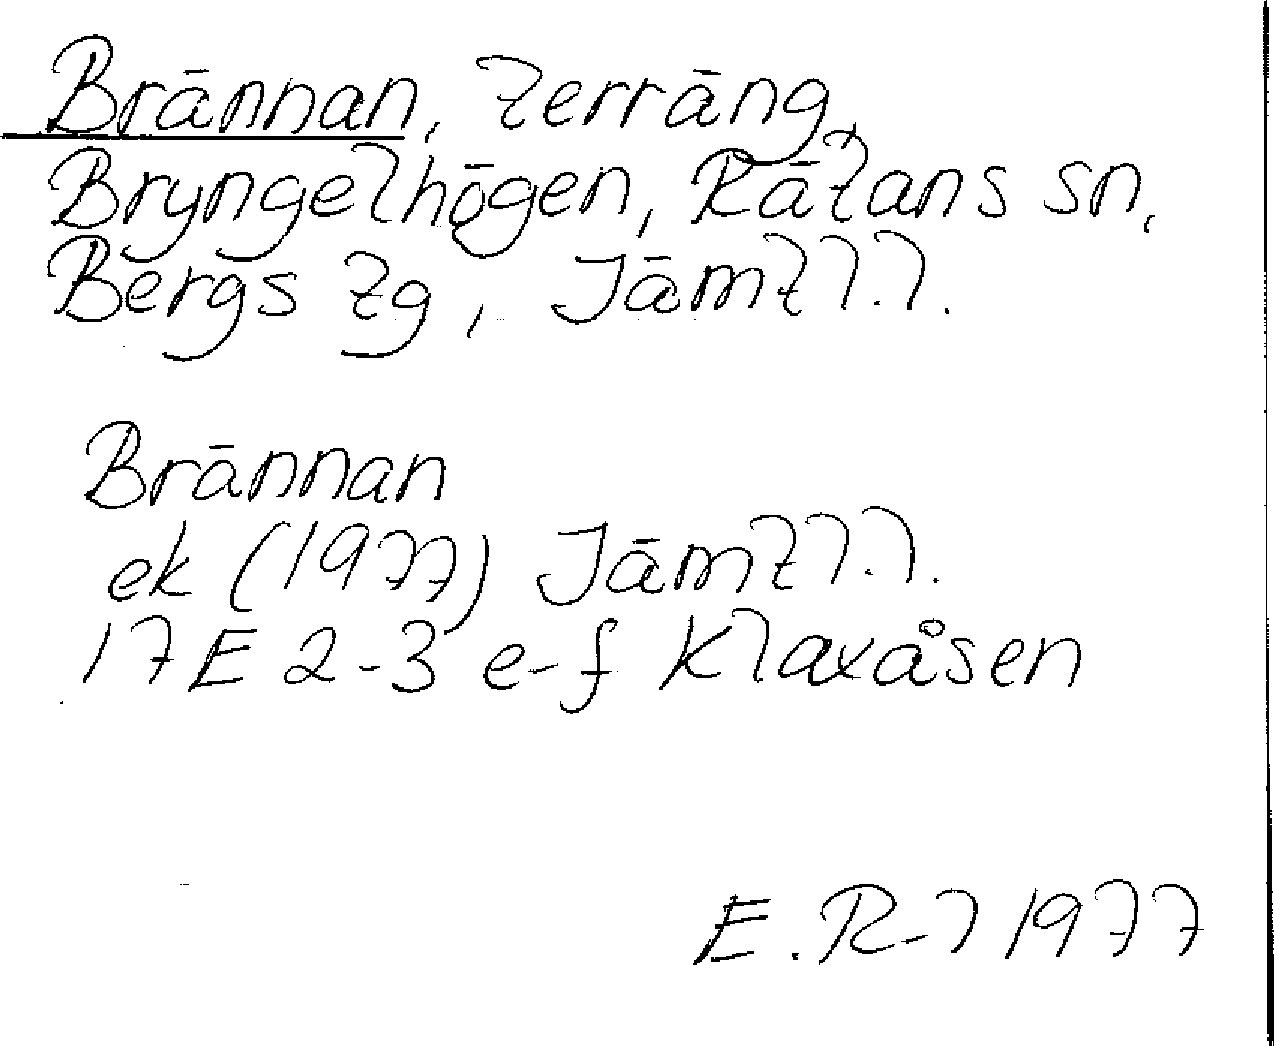 Brännan, terräng,
Bryngelhögen, Rätans sn,
Bergs tg, Jämtl.l.
Brännan
ek (1977) Jämtl.l.
17E 2-3 e-f Klaxåsen
E.R-l 1977